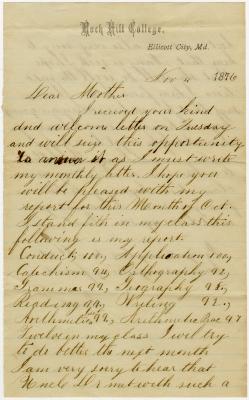 Rock Hill College,
Ellicott City, Md.
Nov 4 1876
Dear Mother
I receive your kind
and welcome letter on Tuesday
and will seize this opportunity
to answer it as I must write
my monthly letter. I hope you
will be pleased with my
report for this Month of Oct.
I stand fith in my class this
following is my report.
Conduct 100, Application 100,
Catechism 94, Orthography 92,
Grammar 92, Geography 98,
Reading 94, Writing 92,
Arithmetic 92, Arithmetic Prac 97
Twelve in my class I will try
to do better the next month
I am very sorry to hear that
Uncle met with such a